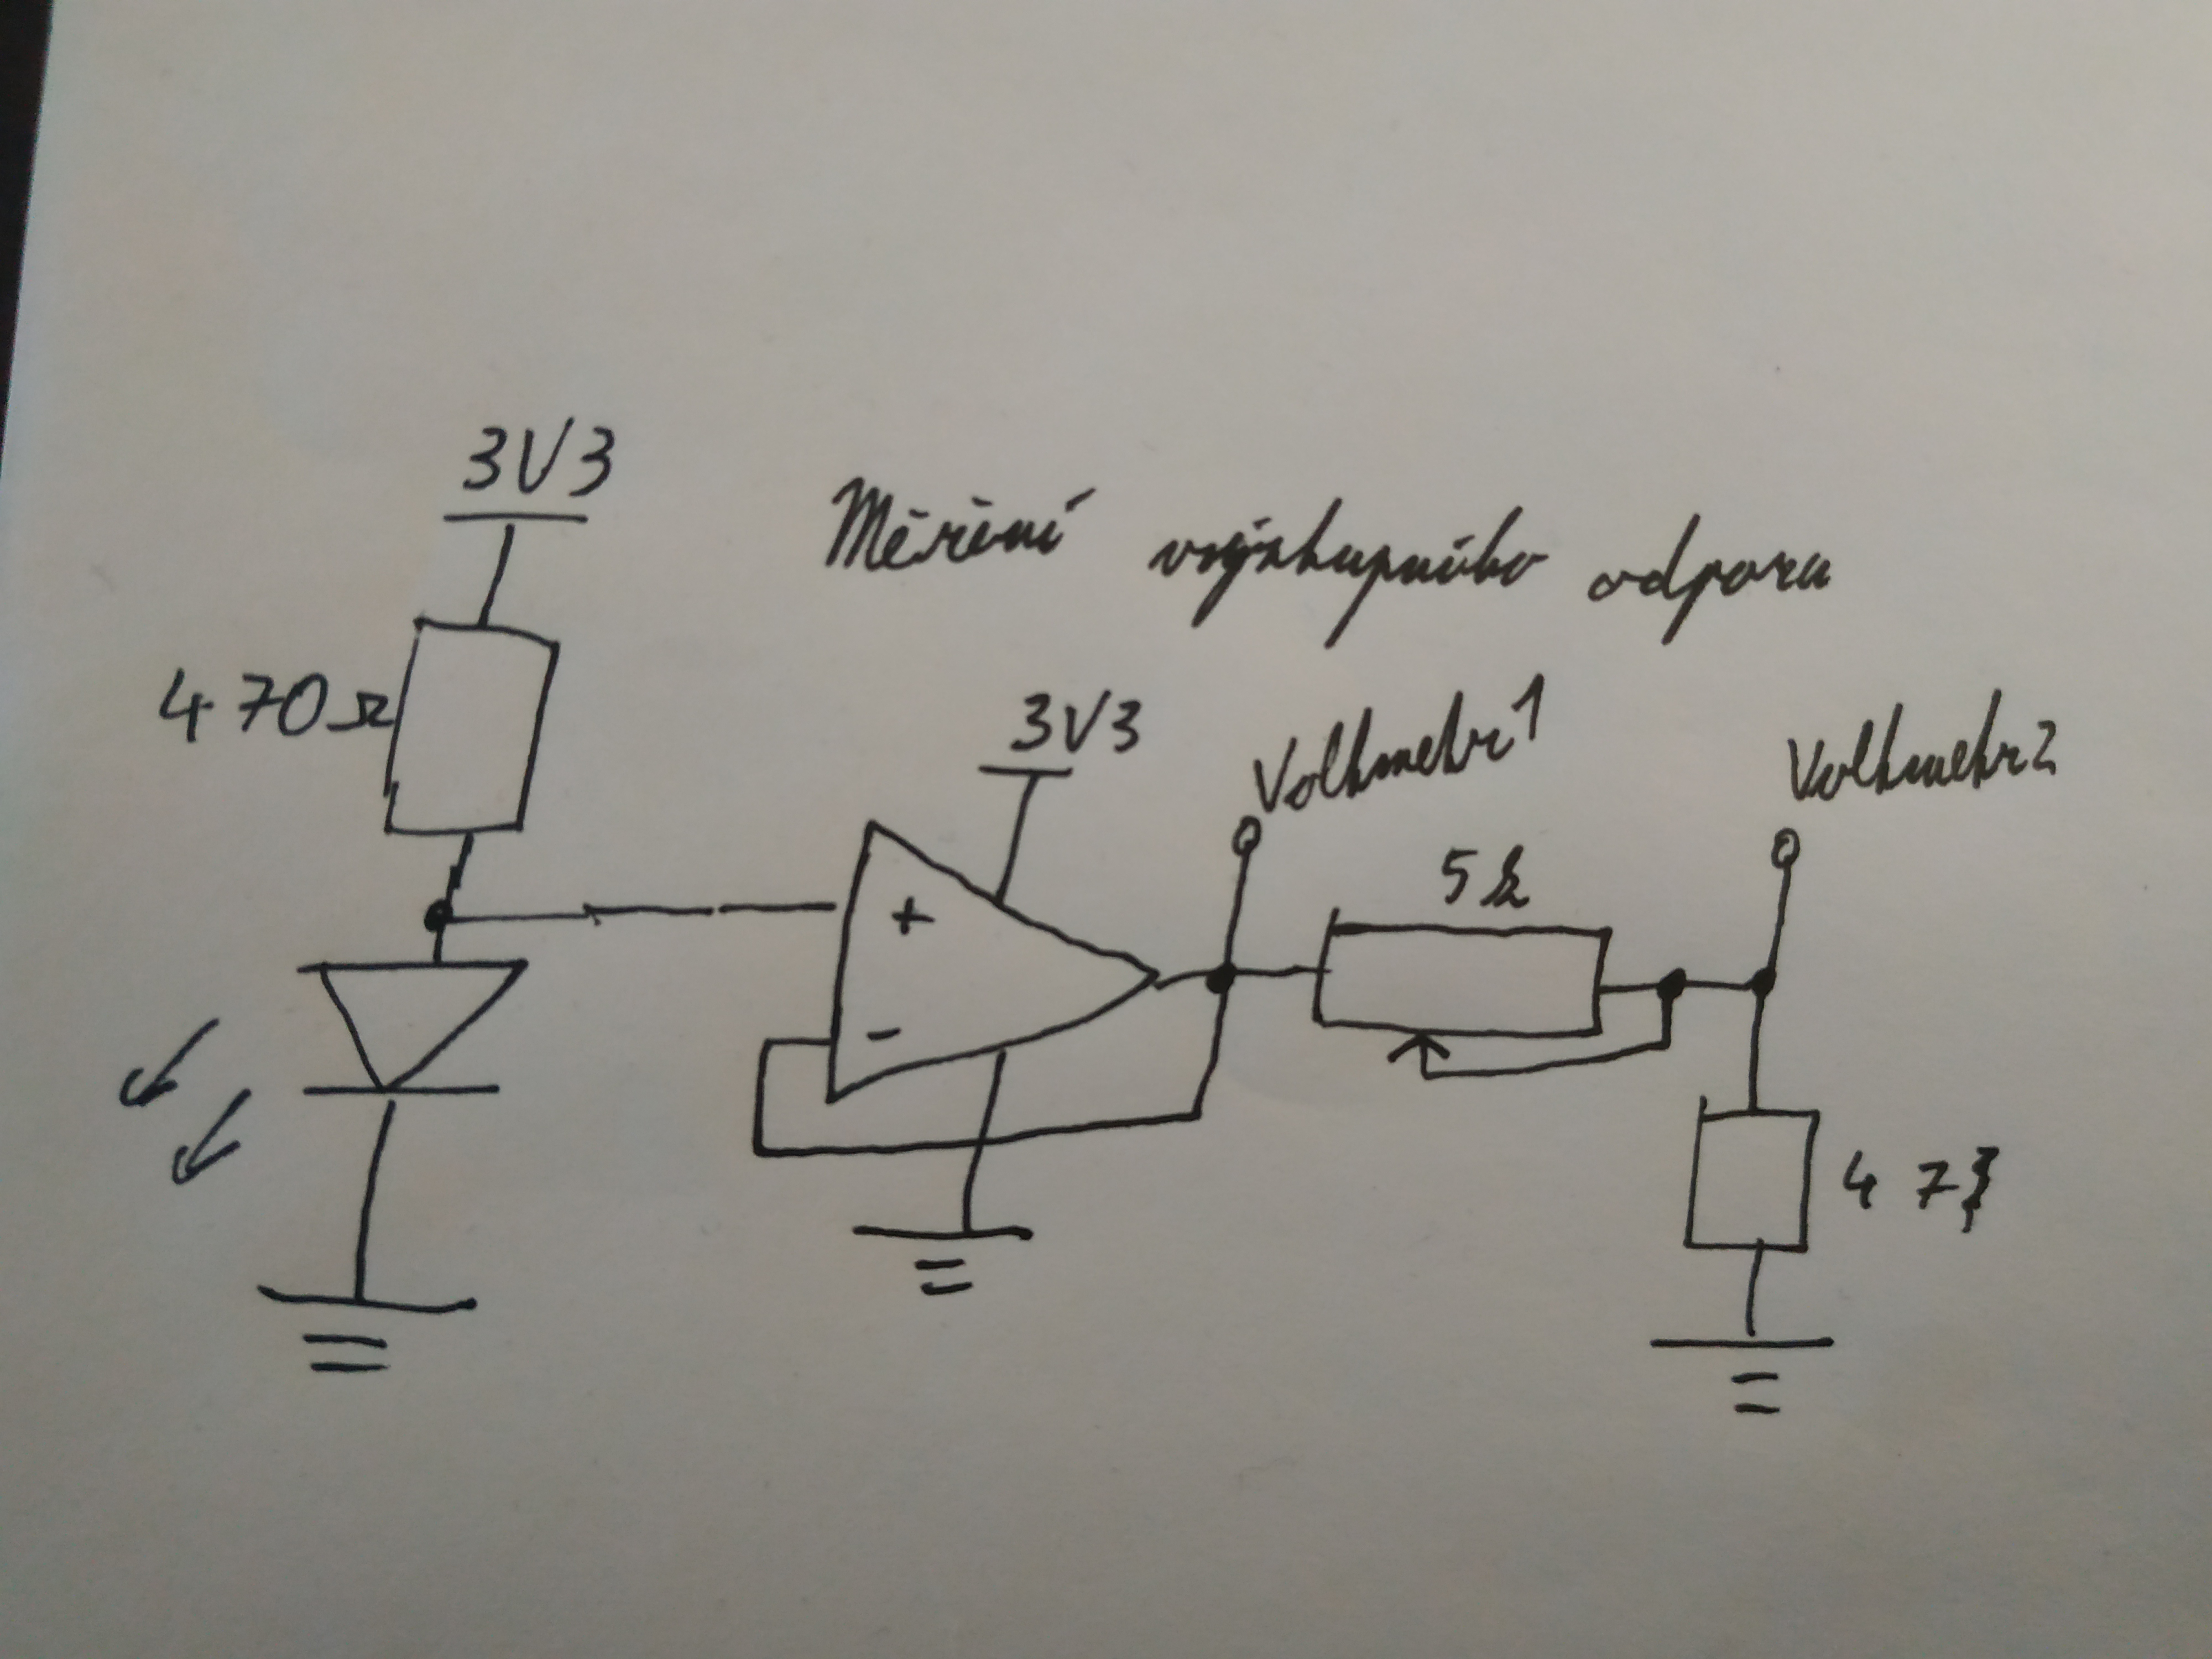 3V3
Měření výstupního odporu
470Ω
3V3
Voltmetr1
Voltmetr2
5k
+
-
47